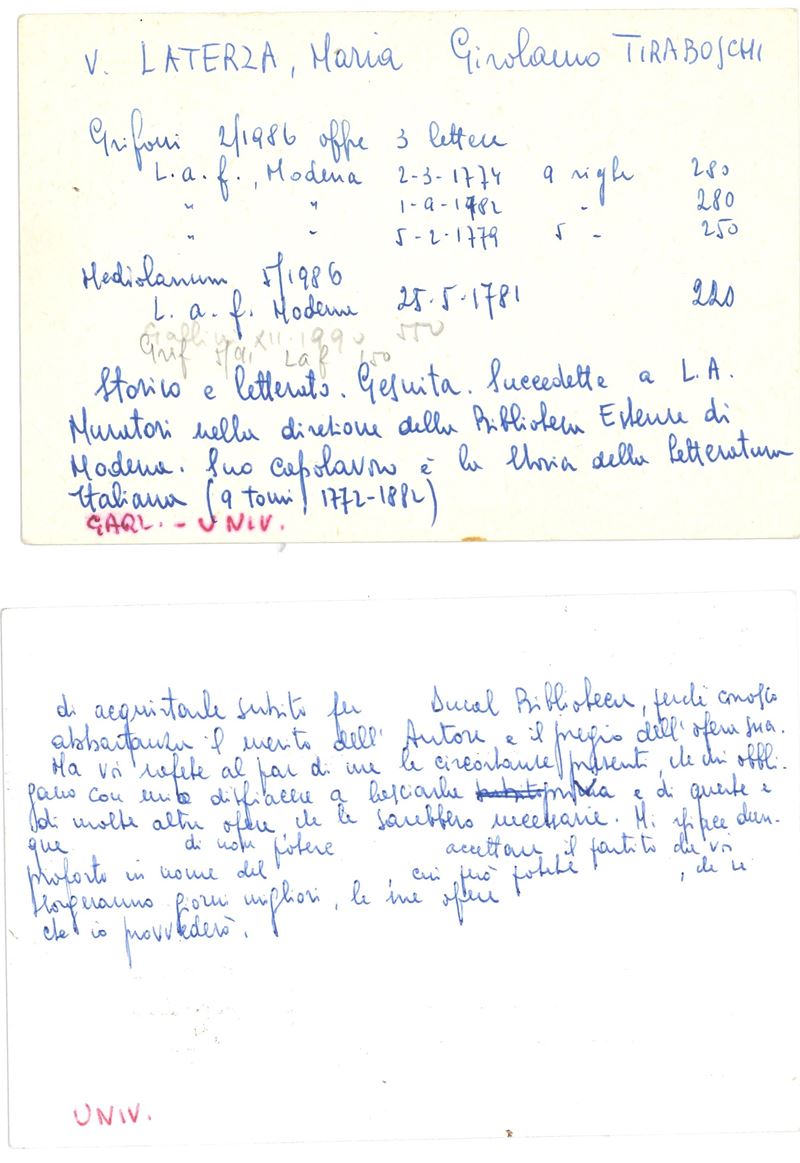 V. LATERZA, Maria Girolamo TIRABOSCHI
Grifoni 2/1986 offre 3 lettere
L.a.f., Modena 2-3-1774 9 righe 280
" " 1-9-1782 - 280
" " 5-2-1779 5 - 250
Mediolanum 5/1986
L. a. f. Modena 25.5.1781 220
XII-1990 550
Grif 5/91 Laf 150
Storico e letterato. Gesuita. Succedette a L.A.
Muratori nella direzione della Biblioteca Estense di
Modena. Suo capolavoro è la Storia della Letteratura
Italiana (9 tomi, 1772-1882)
GARL. - UNIV.
di acquistarle subito per Ducal Biblioteca, perché conosco
abbastanza il merito dell' Autore e il pregio dell'opera sua.
Ma voi sapete al par di me le circostanze presenti, che mi obbli-
gano con mio dispiacere a lasciarla priva e di queste e
di molte altre opere che le sarebbero necessarie. Mi spiace dun-
que di non potere accettare il partito che voi
proposto in nome del , cui però potete , che se
sorgeranno giorni migliori, le sue opere
che io provvederò.
UNIV.